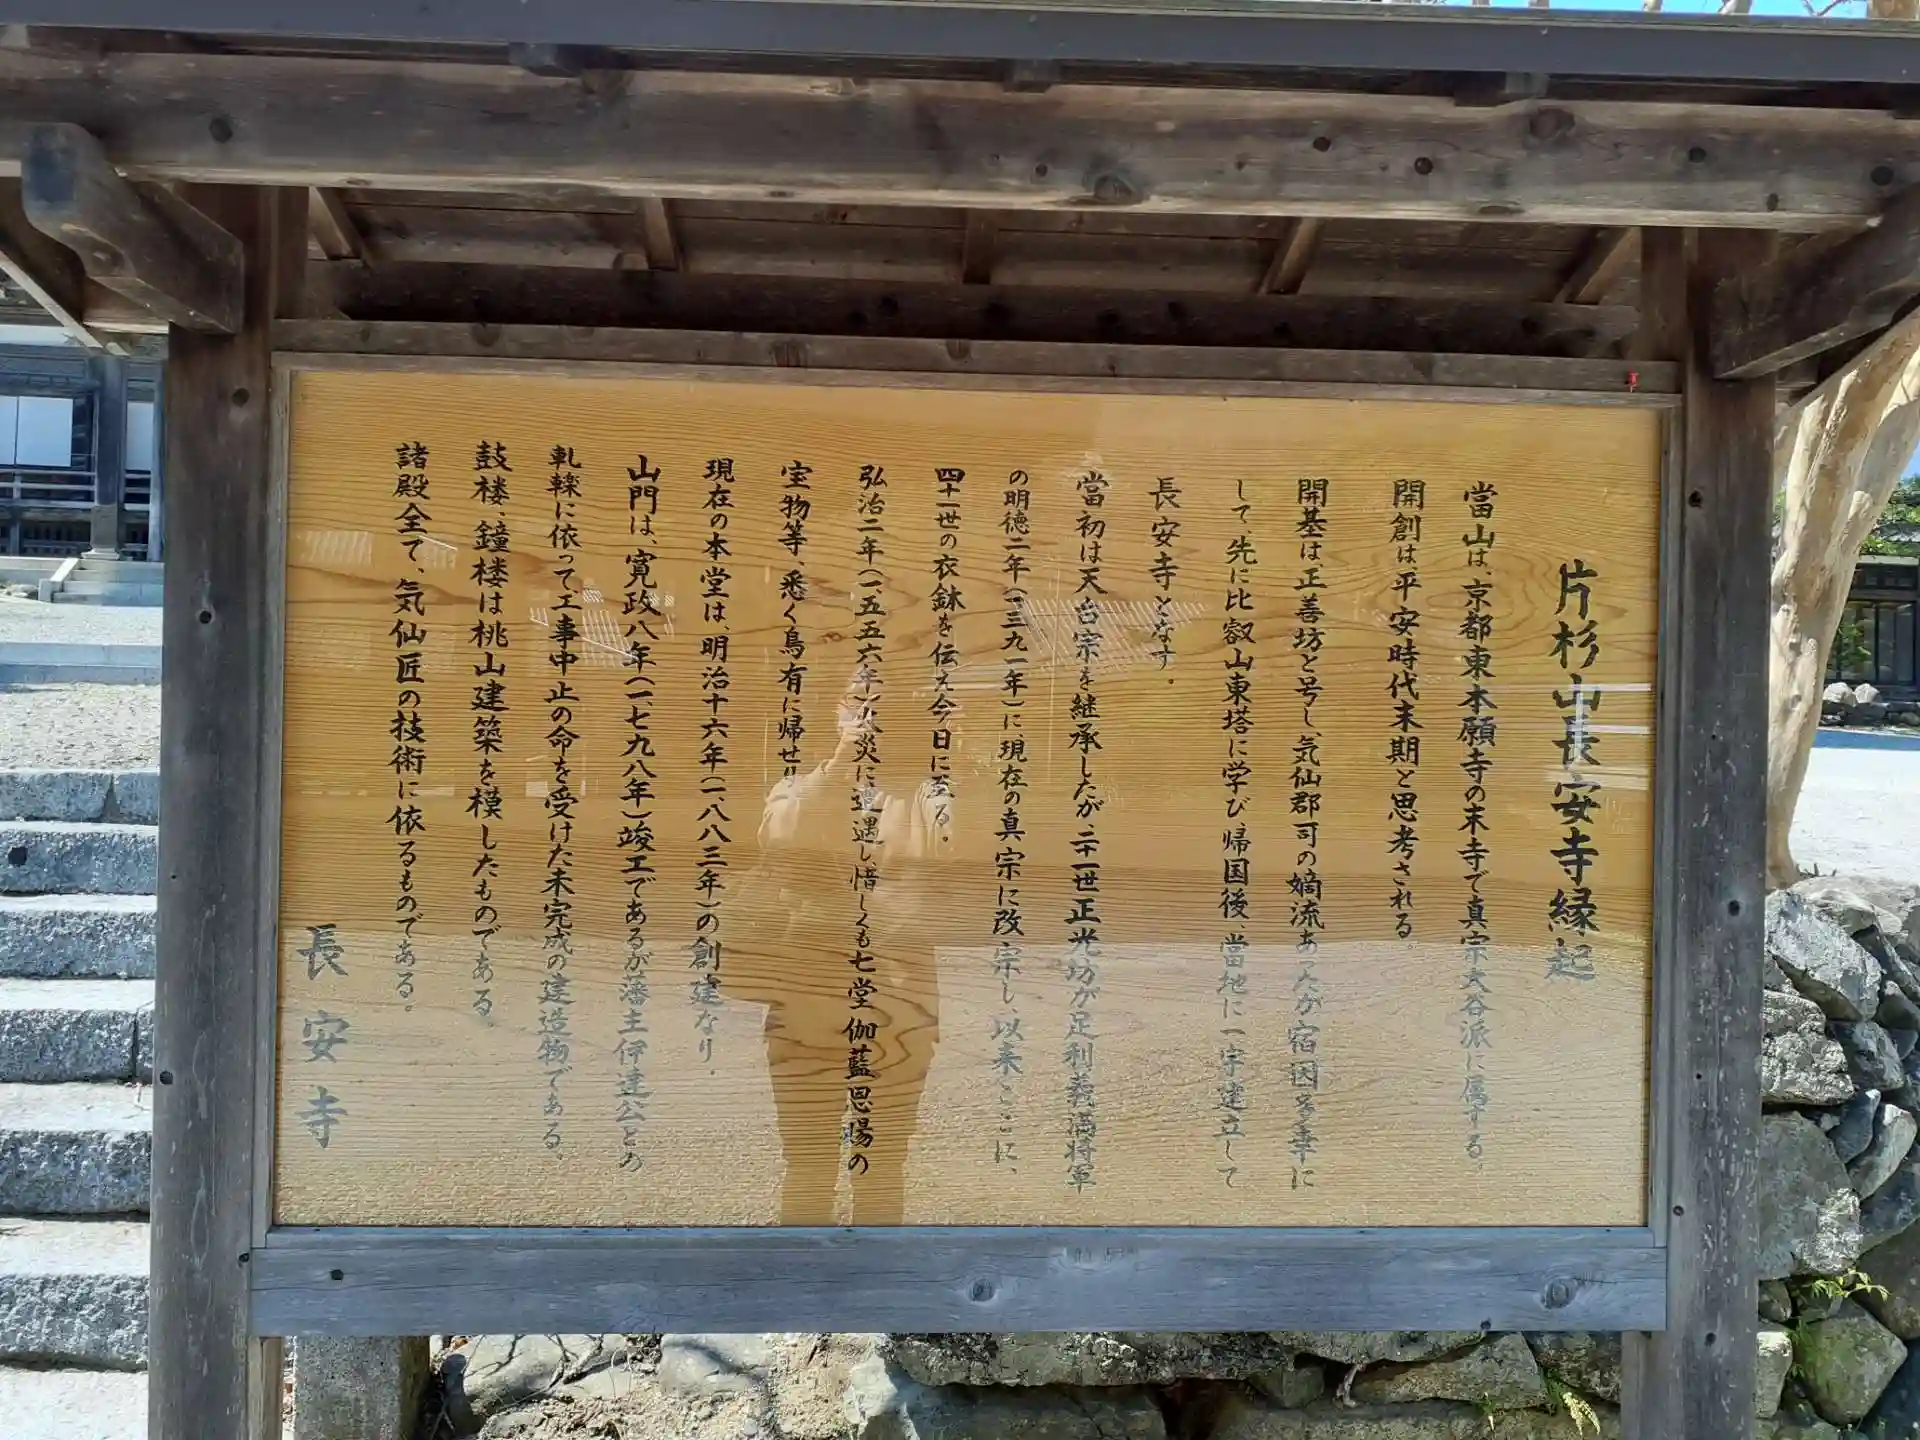 片杉山長安寺縁起
當山は、京都東本願寺の末寺で真宗大谷派に属する。
開創は、平安時代末期と思考される。
開基は、正善坊と号し、気仙郡司の嫡流あったが宿因多幸に
して、先に比叡山東塔に学び、帰国後、當地に一宇建立して
長安寺となす。
當初は天台宗を継承したが、二十一世正光坊が足利義満将軍
の明徳二年(一三九一年)に、現在の真宗に改宗し、以来ここに、
四十一世の衣鉢を伝え今日に至る。
弘治二年(一、五五六年)火災に遭遇し、惜しくも七堂伽藍恩賜の
宝物等、悉く烏有に帰せり
現在の本堂は、明治十六年(一、八八三年)の創建なり。
山門は、寛政八年(一、七九八年)竣工であるが藩主伊達公との
軋轢に依って、工事中止の命を受けた未完成の建造物である。
鼓楼、鐘楼は桃山建築を模したものである。
諸殿全て、気仙匠の技術に依るものである。
長安寺